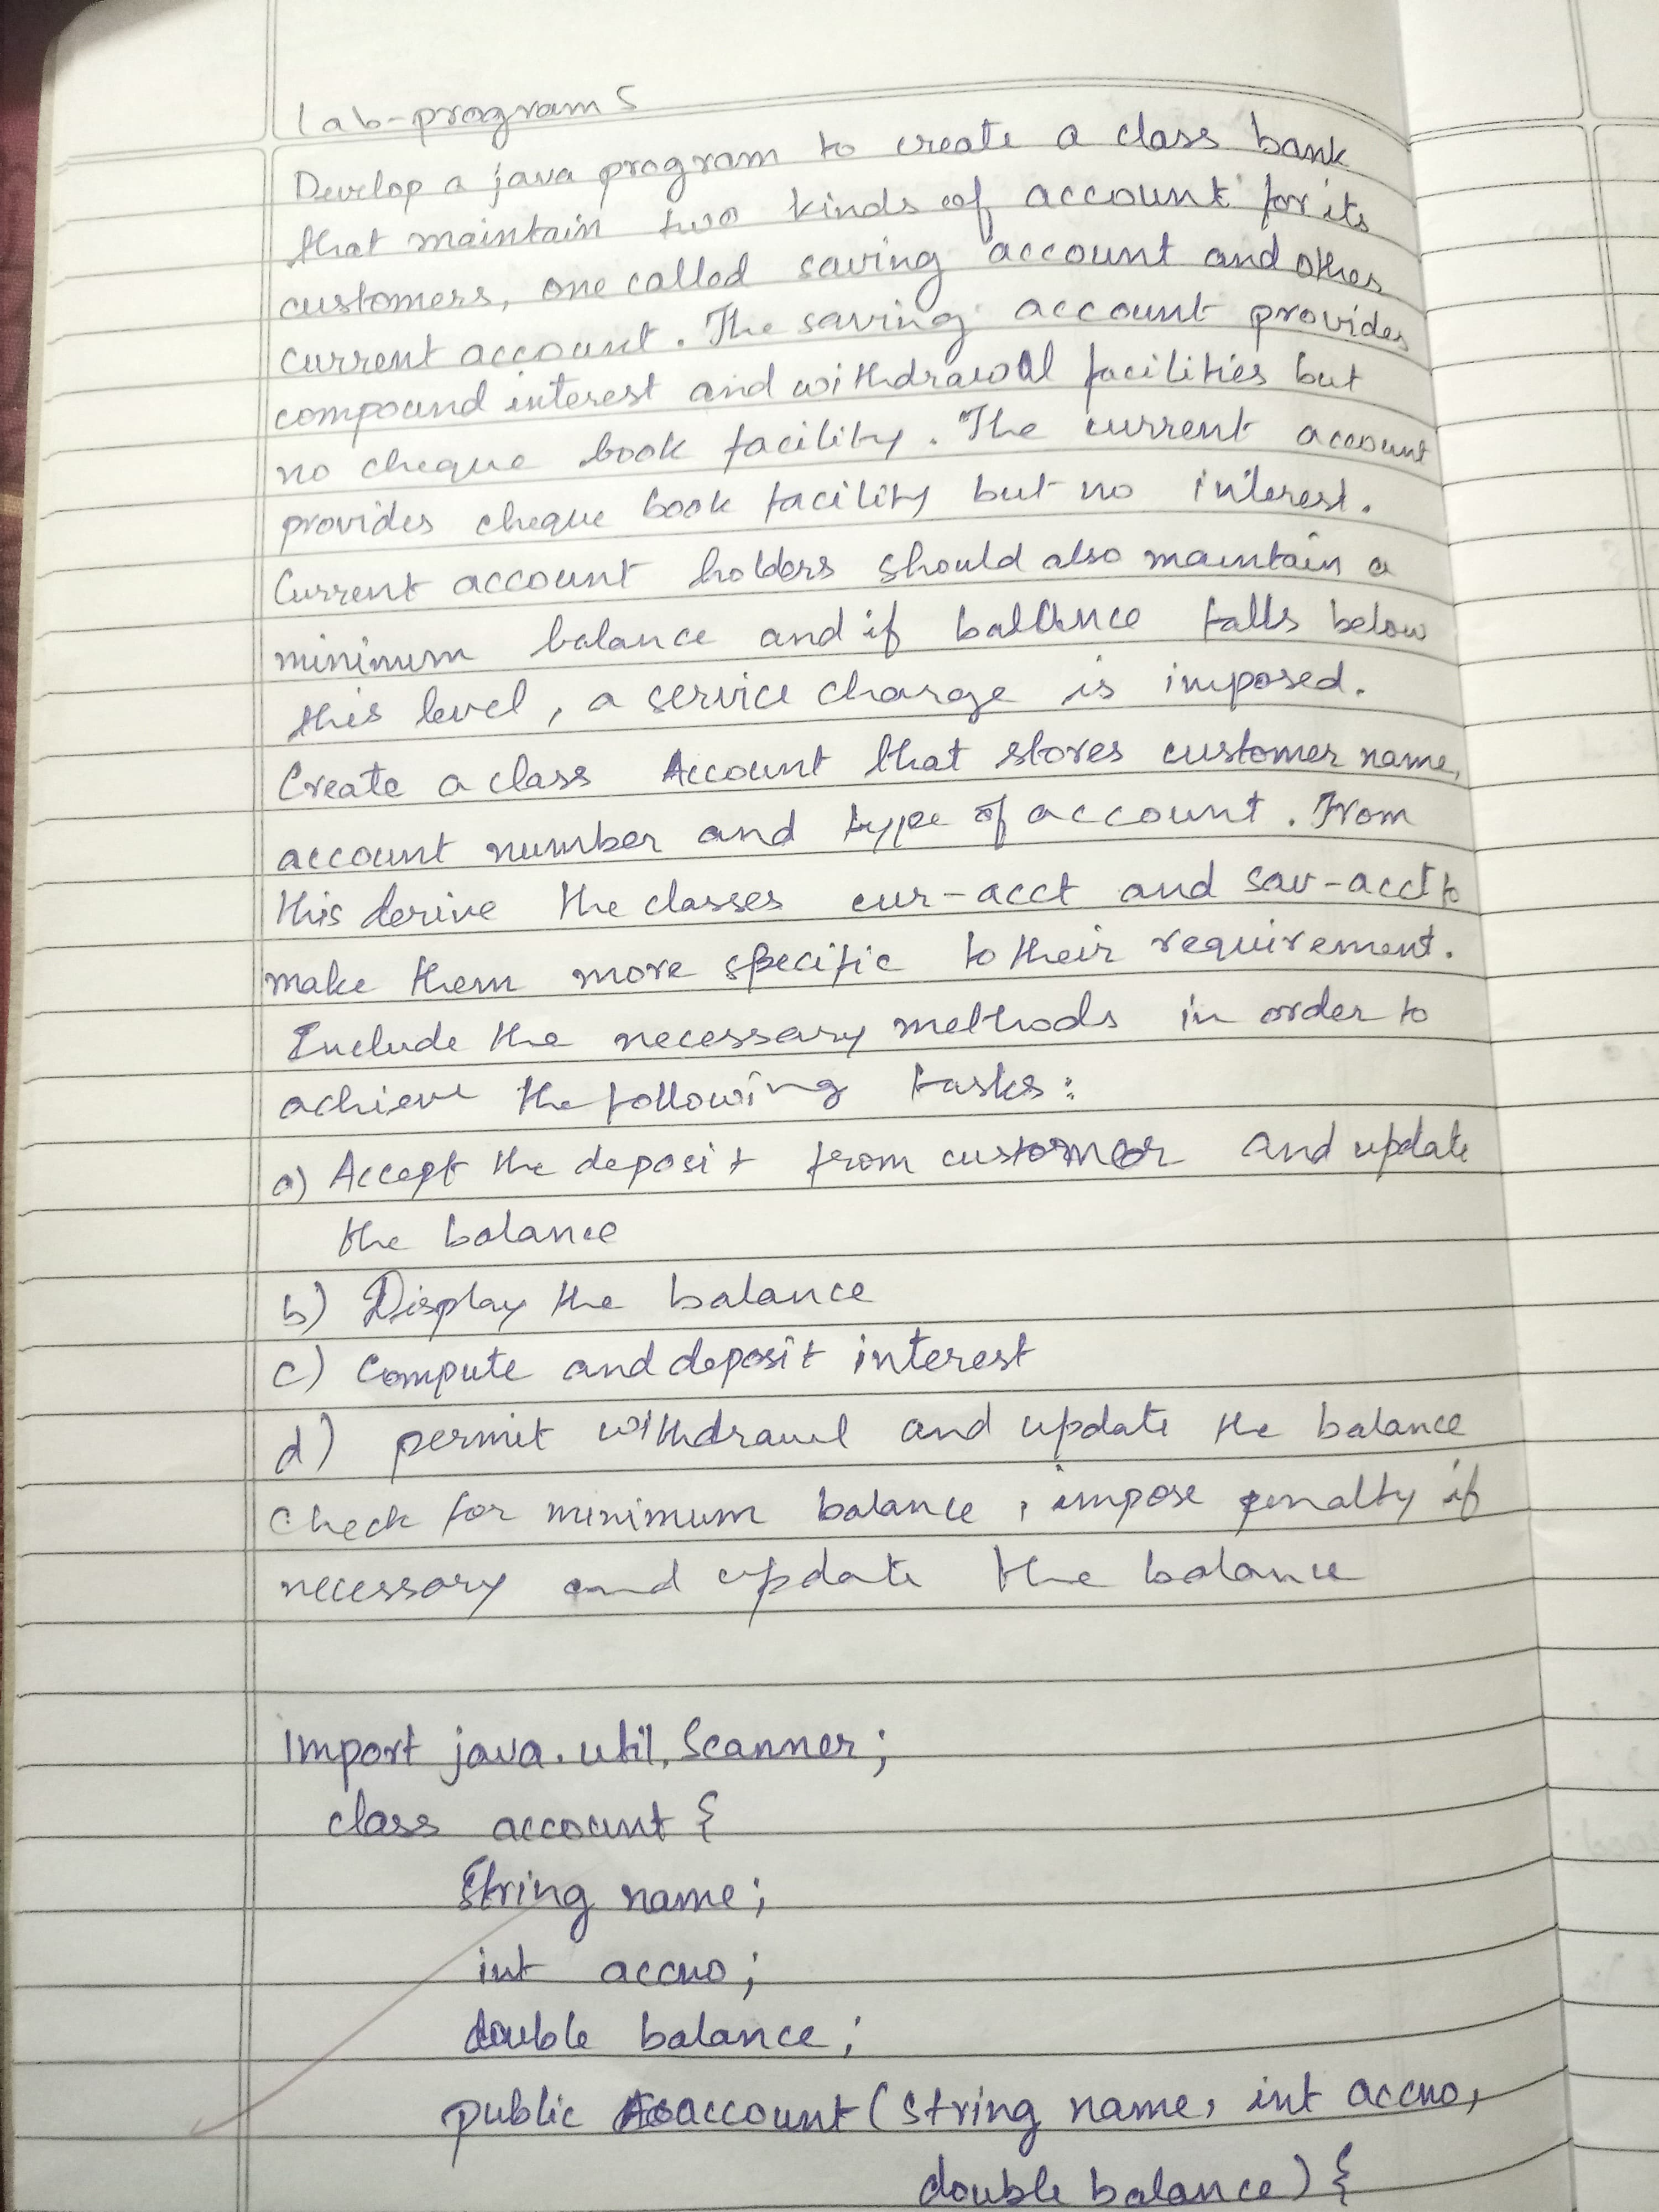 Lab-program 5
Develop a java program to create a class bank
that maintain two kinds of account for its
customers, one called saving account and other
current account. The saving account provides
compound interest and withdrawal facilities but
no cheque book facility. The current account
provides cheque book facility but no interest.
Current account holders should also maintain a
minimum balance and if balance falls below
this level, a service charge is imposed.
Create a class Account that stores customer name,
account number and type of account. From
this derive the classes cur-acct and sav-acct to
make them more specific to their requirement.
Include the necessary methods in order to
achieve the following tasks:
a) Accept the deposit from customer and update
the balance
b) Display the balance
c) Compute and deposit interest
d) permit withdrawl and update the balance
Check for minimum balance, impose penalty if
necessary and update the balance
import java.util.Scanner;
class account {
String name;
int accno;
double balance;
public account (String name, int accno,
double balance) {